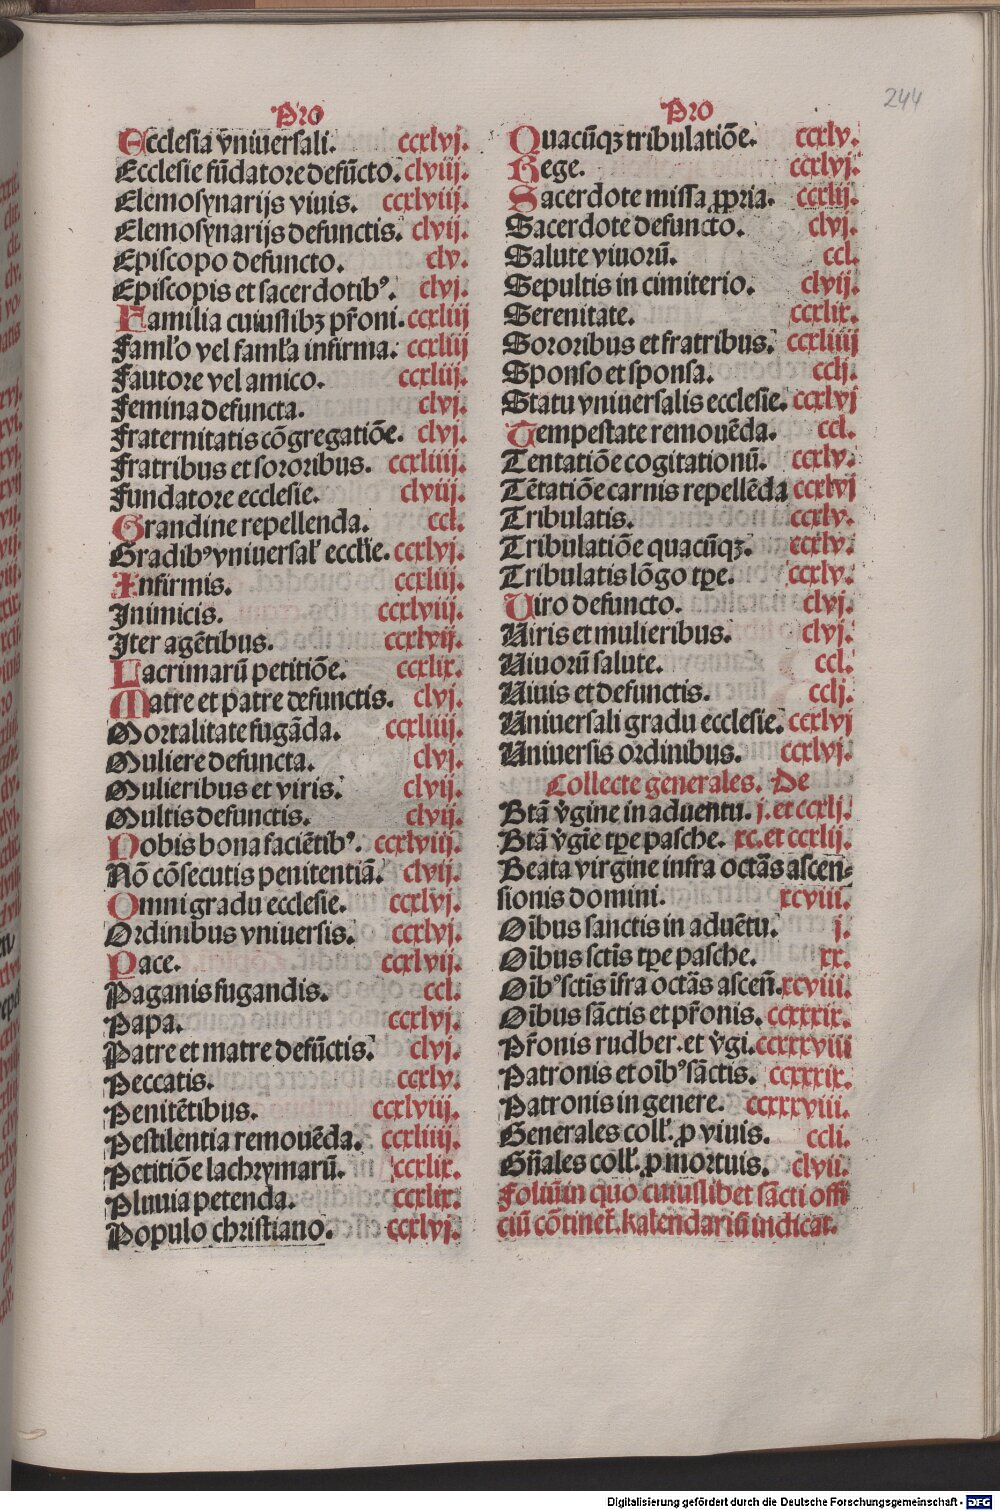 244
Pro
Ecclesia vniuersali. ccxlvj.
Ecclesie fūdatore defūcto. clviij.
Elemosynarijs viuis. ccxlviij.
Elemosynarijs defunctis. clvij.
Episcopo defuncto. clv.
Episcopis et sacerdotibꝰ. clvj.
Familia cuiuslibꝫ pr̄oni. ccxliij
Faml'o vel faml'a infirma. ccxliij
Fautore vel amico. ccxliij.
Femina defuncta. clvj.
Fraternitatis cōgregatiōe. clvj.
Fratribus et sororibus. ccxliiij.
Fundatore ecclesie. clviij.
Grandine repellenda. ccl.
Gradibꝰ vniuersal' eccl'ie. ccxlvj.
Infirmis. ccxliij.
Inimicis. ccxlviij.
Iter agētibus. ccxlvij.
Lacrimarū petitiōe. ccxlix.
Matre et patre defunctis. clvj.
Mortalitate fugāda. ccxliiij.
Muliere defuncta. clvj.
Mulieribus et viris. clvij.
Multis defunctis. clvij.
Nobis bona faciētibꝰ. ccxlviij.
Nō cōsecutis penitentiā. clvij.
Omni gradu ecclesie. ccxlvj.
Ordinibus vniuersis. ccxlvj.
Pace. ccxlvij.
Paganis fugandis. ccl.
Papa. ccxlvj.
Patre et matre defūctis. clvj.
Peccatis. ccxlv.
Penitētibus. ccxlviij.
Pestilentia remouēda. ccxliiij.
Petitiōe lachrymarū. ccxlix.
Pluuia petenda. ccxlix.
Populo christiano. ccxlvj.
Pro
Quacūqꝫ tribulatiōe. ccxlv.
Rege. ccxlvj.
Sacerdote missa ꝓpria. ccxlij.
Sacerdote defuncto. clvj.
Salute viuorū. ccl.
Sepultis in cimiterio. clvij.
Serenitate. ccxlix.
Sororibus et fratribus. ccxliiij
Sponso et sponsa. cclj.
Statu vniuersalis ecclesie. ccxlvj
Tempestate remouēda. ccl.
Tentatiōe cogitationū. ccxlv.
Tētatiōe carnis repellēda ccxlvj
Tribulatis. ccxlv.
Tribulatiōe quacūqꝫ. ccxlv.
Tribulatis lōgo tꝑe. ccxlv.
Uiro defuncto. clvj.
Uiris et mulieribus. clvj.
Uiuorū salute. ccl.
Uiuis et defunctis. cclj.
Uniuersali gradu ecclesie. ccxlvj
Uniuersis ordinibus. ccxlvj.
Collecte generales. De
Btā v̄gine in aduentu. j. et ccxlj.
Btā v̄gīe tꝑe pasche. xc. et ccxlij.
Beata virgine infra octās ascen-
sionis domini. xcviii.
Oībus sanctis in aduētu. j.
Oībus sctīs tꝑe pasche. xx.
Oībꝰ sctīs īfra octās asceñ. xcviii.
Oībus sāctis et pr̄onis. ccxxxix.
Pr̄onis rudber. et v̄gi. ccxxxviii
Patronis et oībꝰ sāctis. ccxxxix.
Patronis in genere. ccxxxviii.
Generales coll'. ꝓ viuis. ccli.
Gn̄ales coll'. ꝓ mortuis. clvii.
Foliū in quo cuiuslibet sācti offi
ciū cōtinet̄. kalendariū indicat.
Digitalisierung gefördert durch die Deutsche Forschungsgemeinschaft - DFG